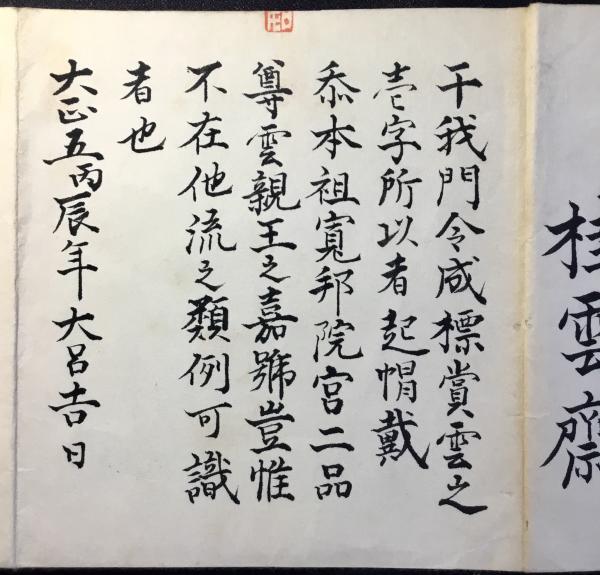 桂雲齋
于我門令成標賞雲之
壱字所以者起帽戴
忝本祖寛邦院宮二品
尊雲親王之嘉號豈惟
不在他流之類例可識
者也
大正五丙辰年大呂吉日